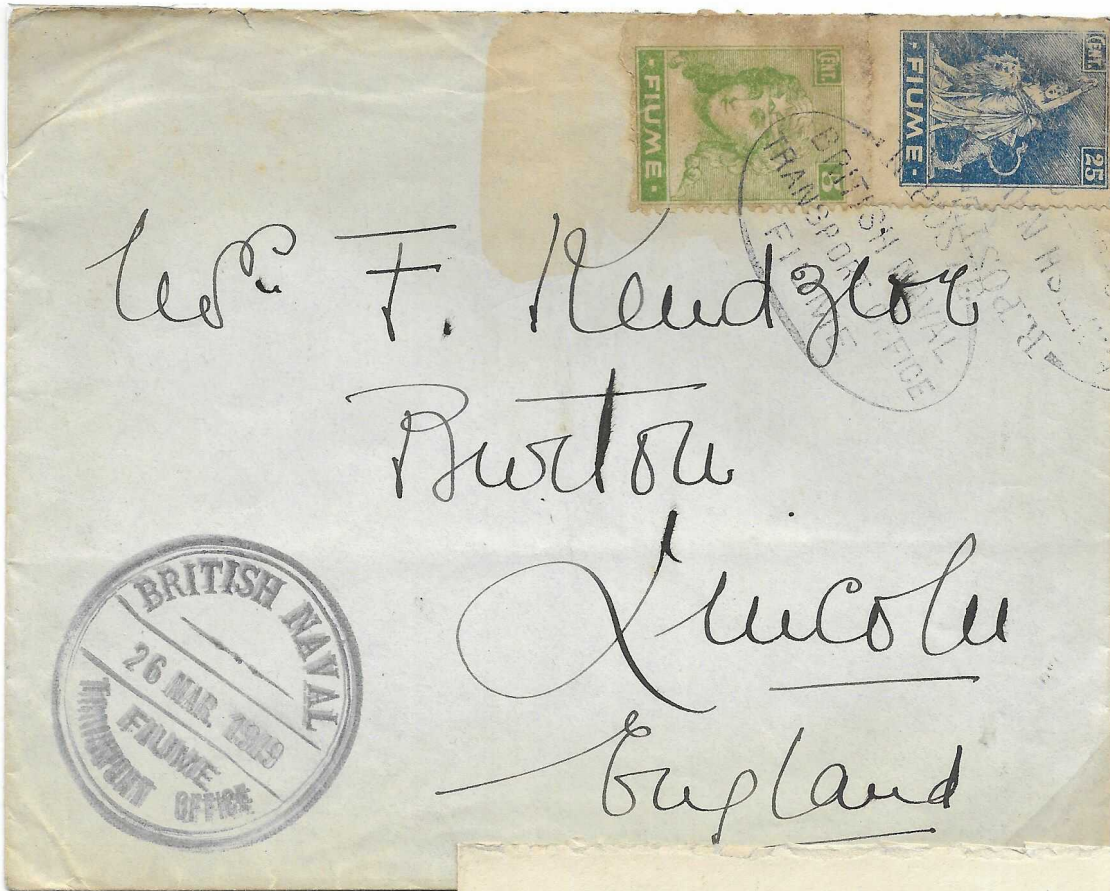 CENT.
FIUME
CENT.
25
FIUME
BRITISH NAVAL
TRANSPORT OFFICE
FIUME
F. Kendzior
Burton
Lincoln
England
BRITISH NAVAL
26 MAR. 1919
FIUME
TRANSPORT OFFICE